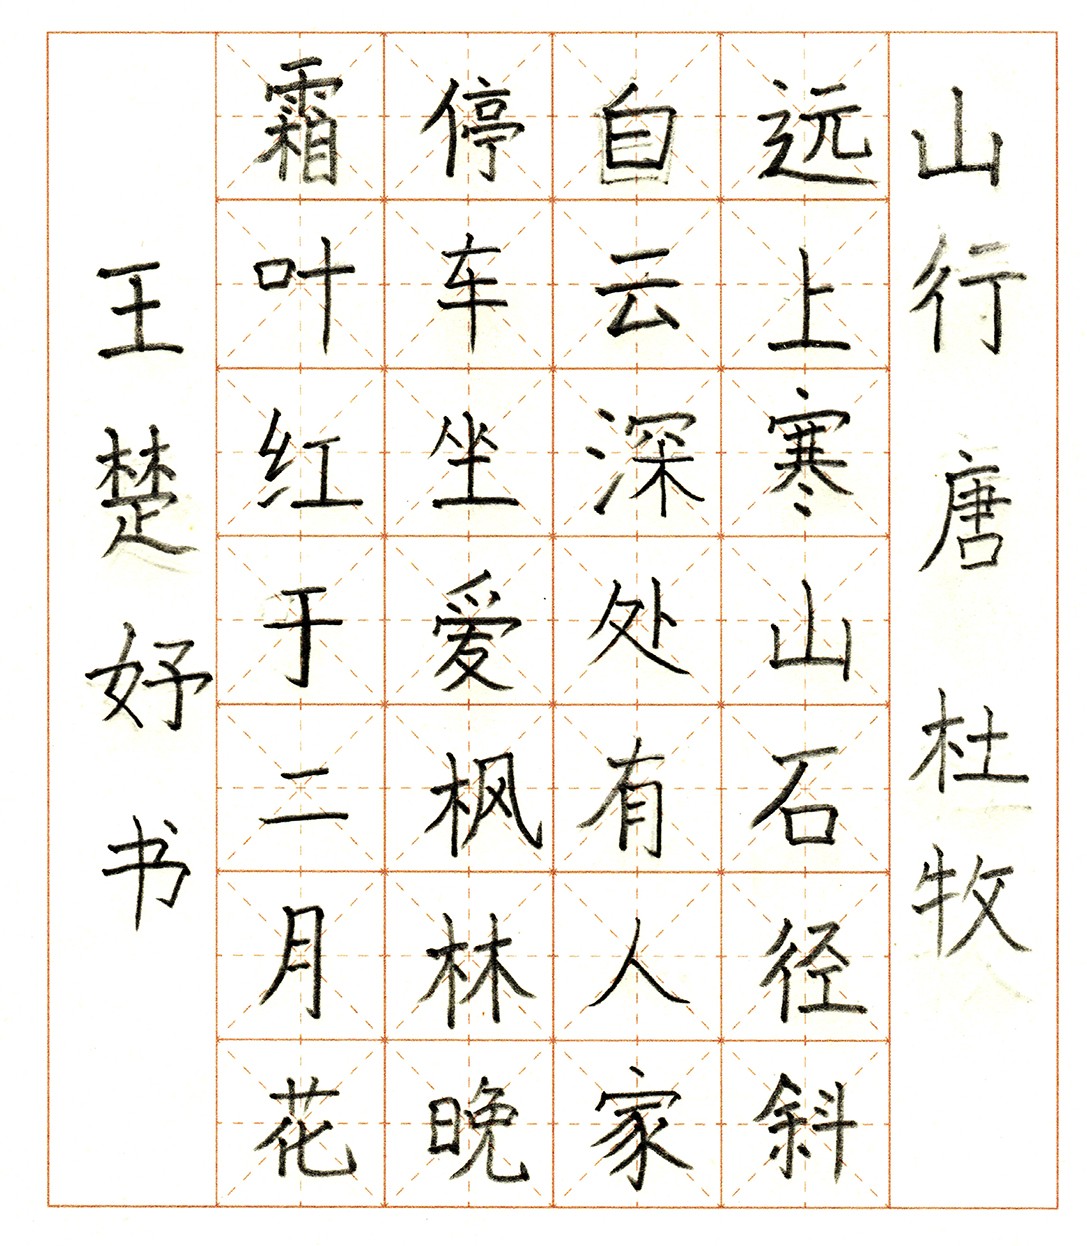 山行 唐 杜牧
远上寒山石径斜
白云深处有人家
停车坐爱枫林晚
霜叶红于二月花
王楚妤书